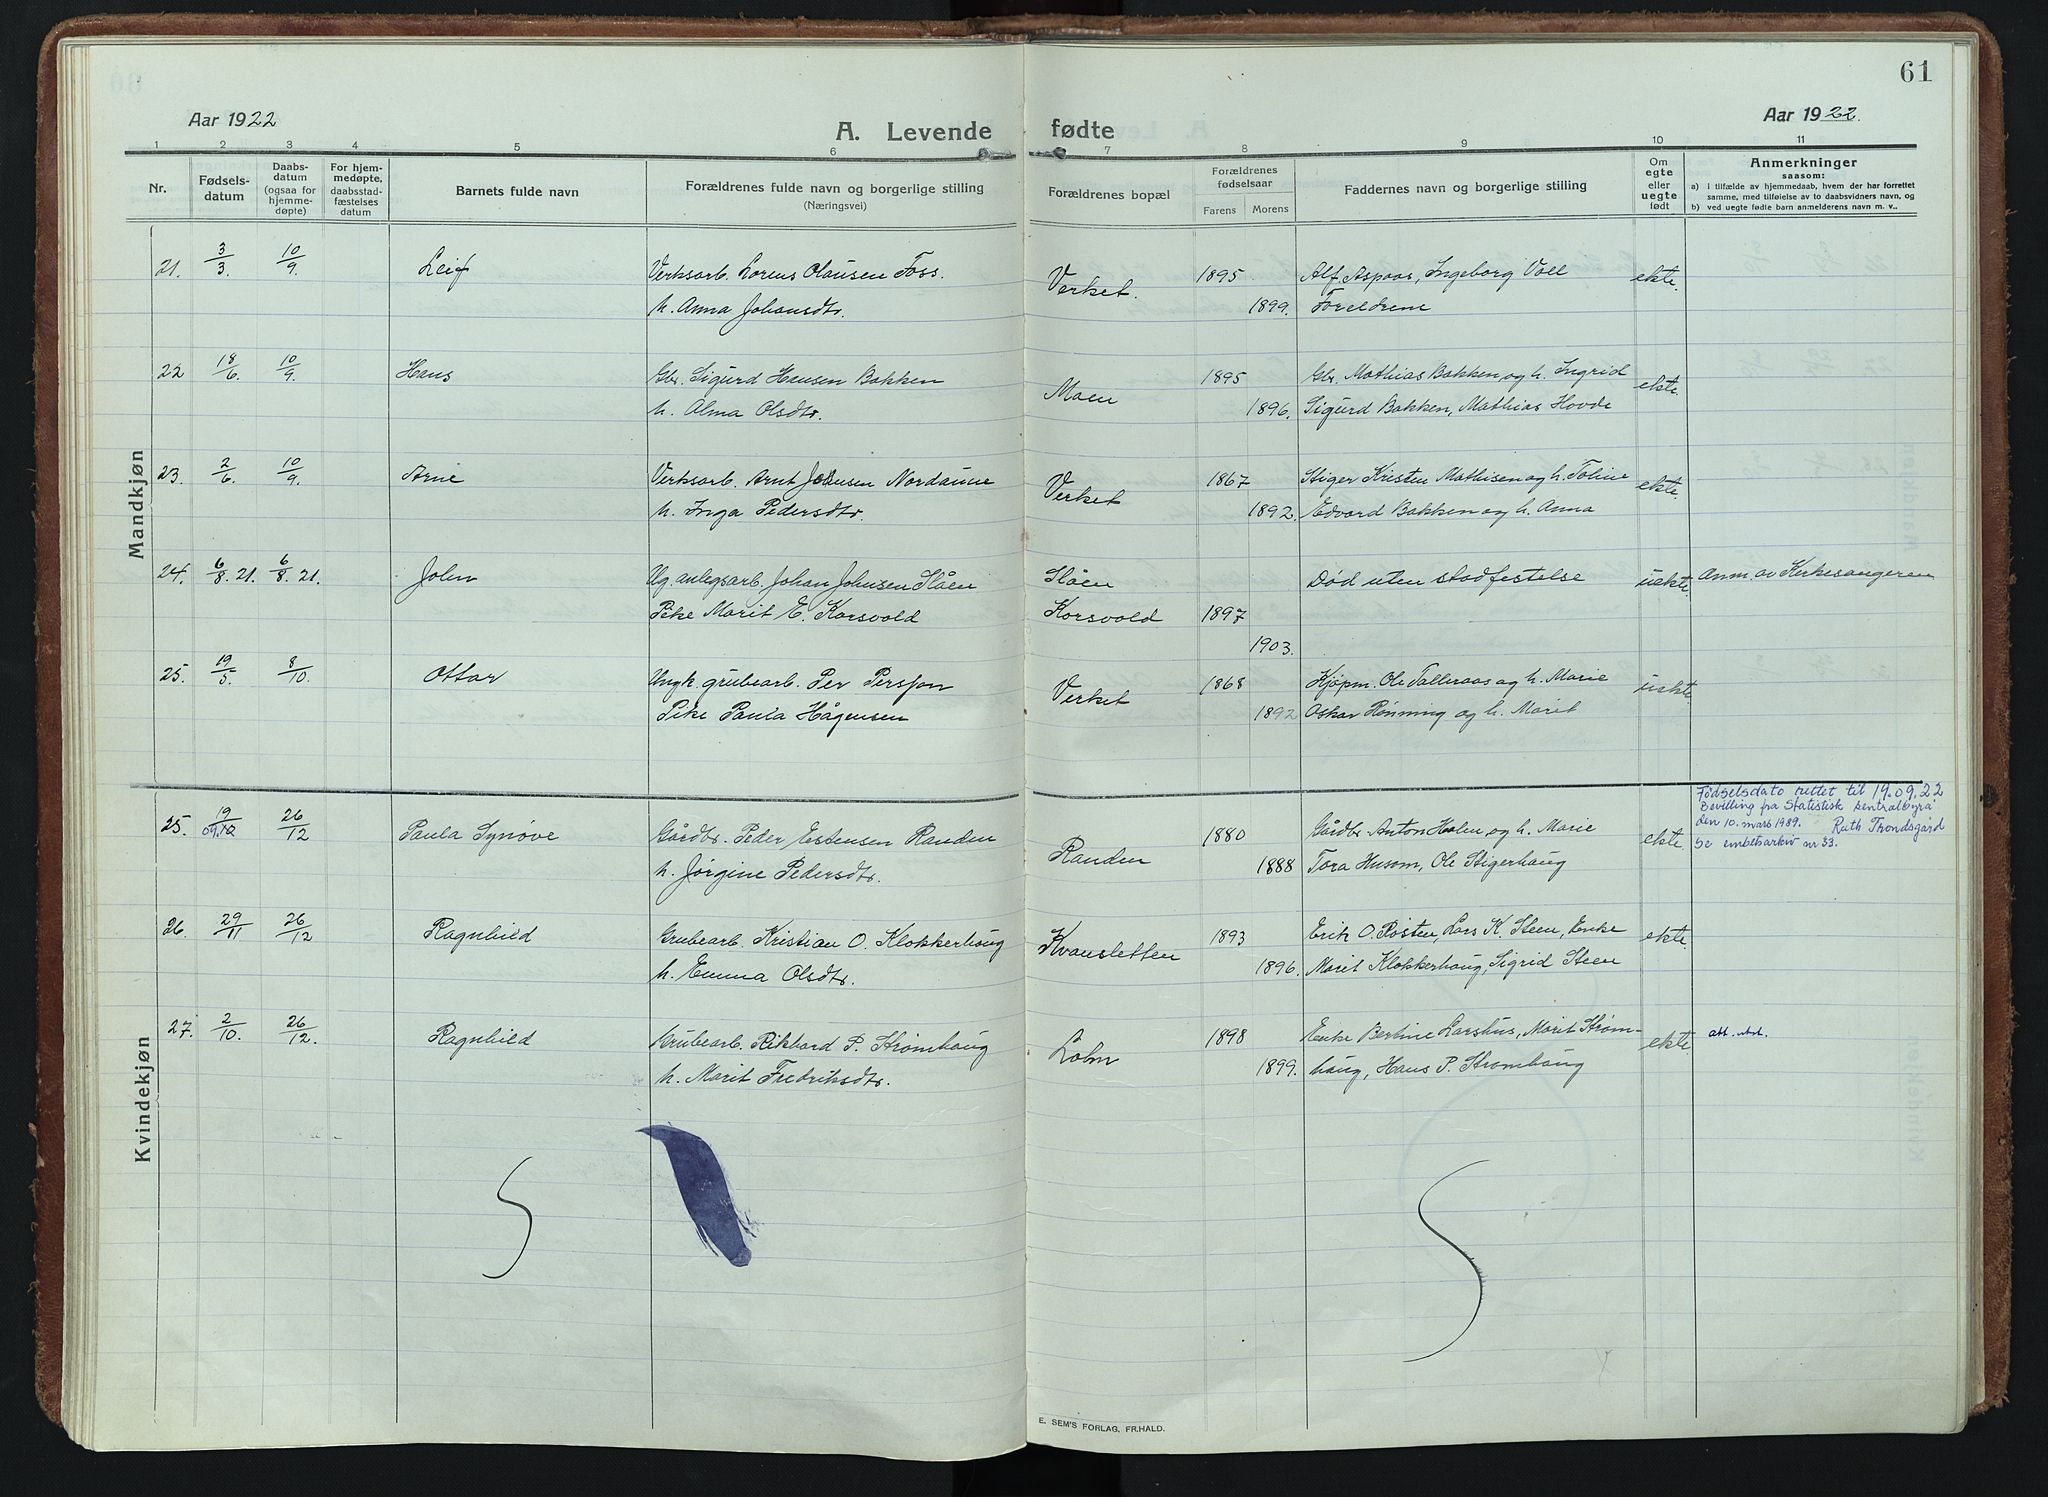 61
Aar 1922
A. Levende fødte
Aar 1922.
1 2 3 4 5 6 7 8 9 10 11
Nr.
Fødsels-
datum
Daabs-
datum
(ogsaa for
hjemme-
døpte)
For hjem-
medøpte,
daabsstad-
fæstelses
datum
Barnets fulde navn
Forældrenes fulde navn og borgerlige stilling
(Næringsvei)
Forældrenes bopæl
Forældrenes
fødselsaar
Farens Morens
Faddernes navn og borgerlige stilling
Om
egte
eller
uegte
født
Anmerkninger
saasom:
a) i tilfælde av hjemmedaab, hvem der har forrettet
samme, med tilføielse av to daabsvidners navn, og
b) ved uegte fødte barn anmelderens navn m. v..
Mandkjøn
21. 3/3. 10/9. Leif Verksarb. Lorens Olausen Foss. Verket. 1895 Alf Aspaas, Ingeborg Voll ekte.
h. Anna Johansdtr. 1899. Foreldrene
22 18/6. 10/9. Hans Gbr. Sigurd Hansen Bakken Moen 1895 Gbr. Mathias Bakken og h. Ingrid ekte.
h. Alma Olsdtr. 1896. Sigurd Bakken, Mathias Hovde
23. 2/6. 10/9. Arne Verksarb. Arnt Johnsen Nordaune Verket 1867 Stiger Kristen Mathisen og h. Toline ekte.
h. Inga Pedersdtr. 1892. Edvard Bakken og h. Anna
24. 6/8. 21. 6/8. 21. John Ug. anlegsarb. Johan Johnsen Slåen Slåen Død uten stadfestelse uekte. Anm. av Kirkesangeren
Pike Marit E. Korsvold Korsvold 1897
1903.
25. 19/5. 8/10. Ottar Ungk. grubearb. Per Persson Verket 1868 Kjøpm. Ole Talleraas og h. Marie uekte
Pike Paula Hågensen 1892 Oskar Rønning og h. Marit
Kvindekjøn
25. 19/09. 26/12 Paula Synøve Gårdbr. Peder Estensen Randen Randen 1880 Gårdbr. Anton Holen, og h. Marie ekte.
h. Jørgine Pedersdtr. 1888 Tora Husom, Ole Stigerhaug
Fødselsdato rettet til 19.09.22
Bevilling fra Statistisk Sentralbyrå
den 10. mars 1989. Ruth Trondsgård
Se embetsarkiv nr 33.
26. 29/11 26/12 Ragnhild Grubearb. Kristian O. Klokkerhaug Kvansletten 1893 Erik O. Røsten, Lars K. Steen, Enke ekte.
h. Emma Olsdtr. 1896. Marit Klokkerhaug, Sigrid Steen
27. 2/10. 26/12. Ragnhild Grubearb. Rikhard P. Strømhaug Lohn 1898 Enke Bertine Larshus, Marit Strøm- ekte. att. utst.
h. Marit Fredriksdtr. 1899. haug, Hans P. Strømhaug
E. SEM'S FORLAG, FR.HALD.